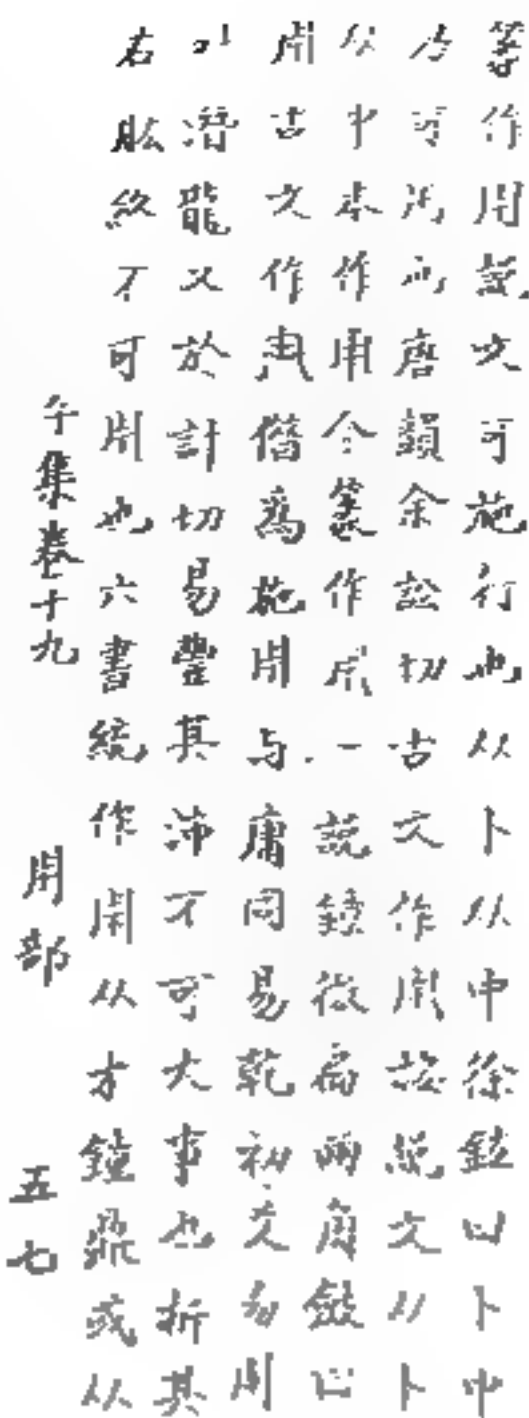 等作用說文可施行也从卜从中徐鉉曰卜中
乃可用也唐韻余訟切古文作用說文从卜
从中本作用今篆作用一說鐘微扁兩角斂
用古文作借為施用与庸同易乾初爻勿用
潛龍又於計切易豐其沛不可大事也折其
右肱終不可用也六書統作用从才鐘鼎或从
午集卷十九 用部 五七